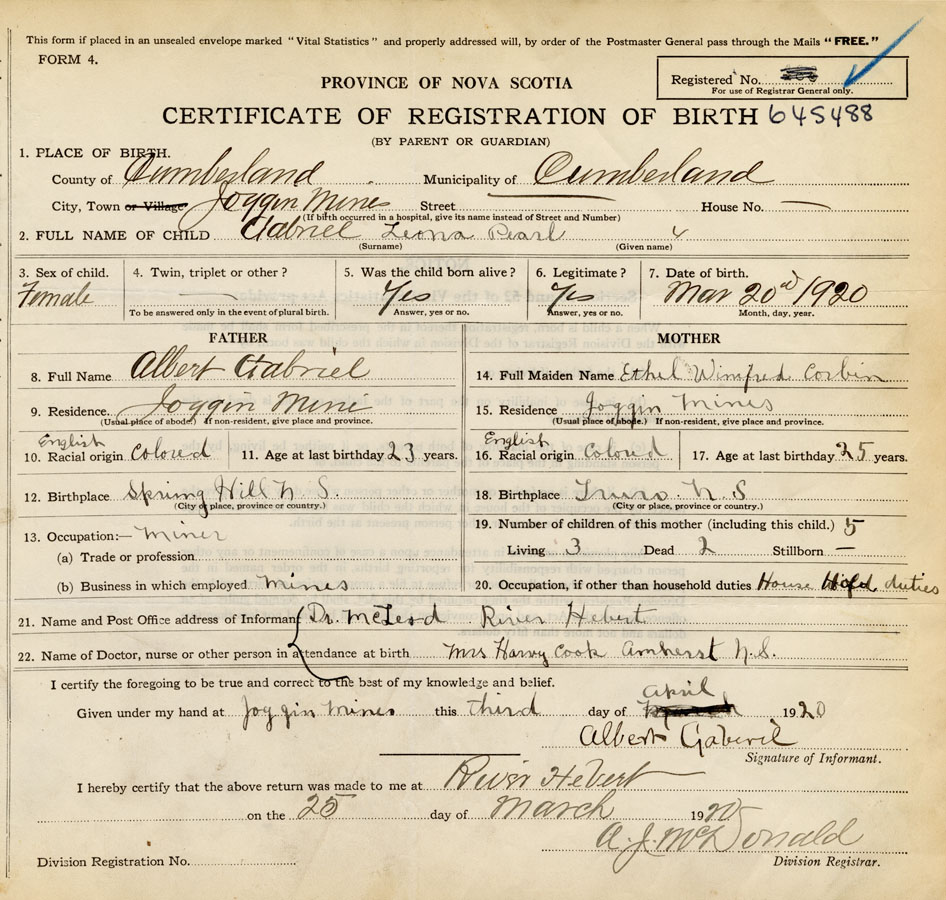 This form if placed in an unsealed envelope marked "Vital Statistics" and properly addressed will, by order of the Postmaster General pass through the Mails "FREE."
FORM 4.
Registered No.
For use of Registrar General only.
PROVINCE OF NOVA SCOTIA
CERTIFICATE OF REGISTRATION OF BIRTH 645488
(BY PARENT OR GUARDIAN)
1. PLACE OF BIRTH.
County of Cumberland Municipality of Cumberland
City, Town or Village Joggin Mines Street House No. —
(If birth occurred in a hospital, give its name instead of Street and Number)
2. FULL NAME OF CHILD Gabriel Leona Pearl
(Surname) (Given name)
3. Sex of child. 4. Twin, triplet or other? 5. Was the child born alive? 6. Legitimate? 7. Date of birth.
Female — Yes Yes Mar 20d 1920
To be answered only in the event of plural birth. Answer, yes or no. Answer, yes or no. Month, day, year.
FATHER MOTHER
8. Full Name Albert Gabriel 14. Full Maiden Name Ethel Winifred Corbin
9. Residence. Joggin Mine 15. Residence Joggin Mines
(Usual place of abode.) If non-resident, give place and province. (Usual place of abode.) If non-resident, give place and province.
English English
10. Racial origin Colored 11. Age at last birthday 23 years. 16. Racial origin Colored 17. Age at last birthday 25 years.
12. Birthplace Spring Hill N.S. 18. Birthplace Truro. N.S
(City or place, province or country.) (City or place, province or country.)
13. Occupation:— Miner 19. Number of children of this mother (including this child.) 5
(a) Trade or profession Living 3 Dead 2 Stillborn —
(b) Business in which employed Mines 20. Occupation, if other than household duties House Hold duties
21. Name and Post Office address of Informant Dr. McLeod River Hebert
22. Name of Doctor, nurse or other person in attendance at birth Mrs Harvy Cook Amherst N.S.
I certify the foregoing to be true and correct to the best of my knowledge and belief.
April
Given under my hand at Joggin Mines this third day of 1920
Albert Gaberil
Signature of Informant.
I hereby certify that the above return was made to me at River Hebert
on the 25 day of March 1920
A. J. McDonald
Division Registration No. Division Registrar.